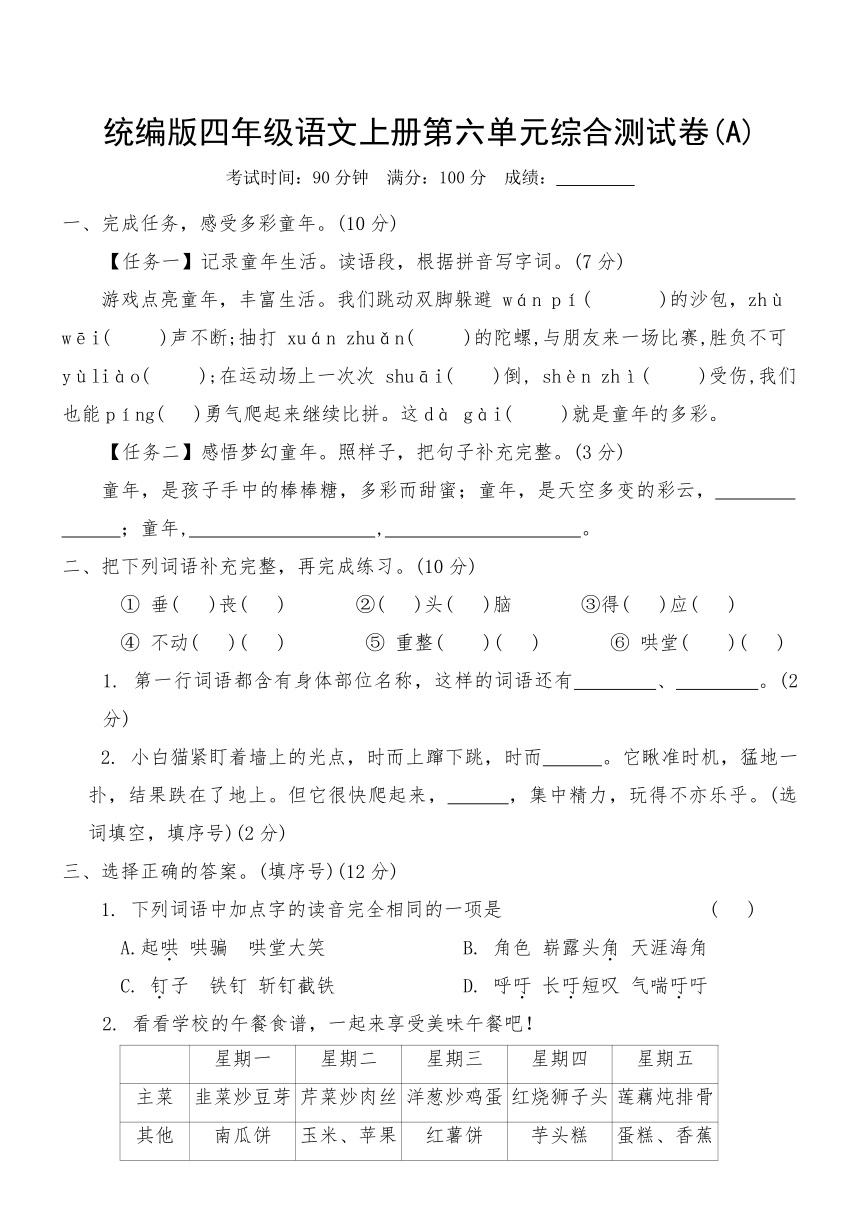 统编版四年级语文上册第六单元综合测试卷(A)
考试时间:90分钟 满分:100分 成绩:________
一、完成任务，感受多彩童年。(10分)
【任务一】记录童年生活。读语段，根据拼音写字词。(7分)
游戏点亮童年，丰富生活。我们跳动双脚躲避 wán pí( )的沙包，zhù
wēi( )声不断;抽打 xuán zhuǎn( )的陀螺,与朋友来一场比赛,胜负不可
yùliào( );在运动场上一次次 shuāi( )倒, shèn zhì( )受伤,我们
也能píng( )勇气爬起来继续比拼。这dà gài( )就是童年的多彩。
【任务二】感悟梦幻童年。照样子，把句子补充完整。(3分)
童年，是孩子手中的棒棒糖，多彩而甜蜜；童年，是天空多变的彩云，________
______；童年,____________________,____________________。
二、把下列词语补充完整，再完成练习。(10分)
① 垂( )丧( ) ②( )头( )脑 ③得( )应( )
④ 不动( )( ) ⑤ 重整( )( ) ⑥ 哄堂( )( )
1. 第一行词语都含有身体部位名称，这样的词语还有________、________。(2
分)
2. 小白猫紧盯着墙上的光点，时而上蹿下跳，时而______。它瞅准时机，猛地一
扑，结果跌在了地上。但它很快爬起来，______，集中精力，玩得不亦乐乎。(选
词填空，填序号)(2分)
三、选择正确的答案。(填序号)(12分)
1. 下列词语中加点字的读音完全相同的一项是 ( )
A.起哄 哄骗 哄堂大笑 B. 角色 崭露头角 天涯海角
C. 钉子 铁钉 斩钉截铁 D. 呼吁 长吁短叹 气喘吁吁
2. 看看学校的午餐食谱，一起来享受美味午餐吧！
星期一 星期二 星期三 星期四 星期五
主菜 韭菜炒豆芽 芹菜炒肉丝 洋葱炒鸡蛋 红烧狮子头 莲藕炖排骨
其他 南瓜饼 玉米、苹果 红薯饼 芋头糕 蛋糕、香蕉